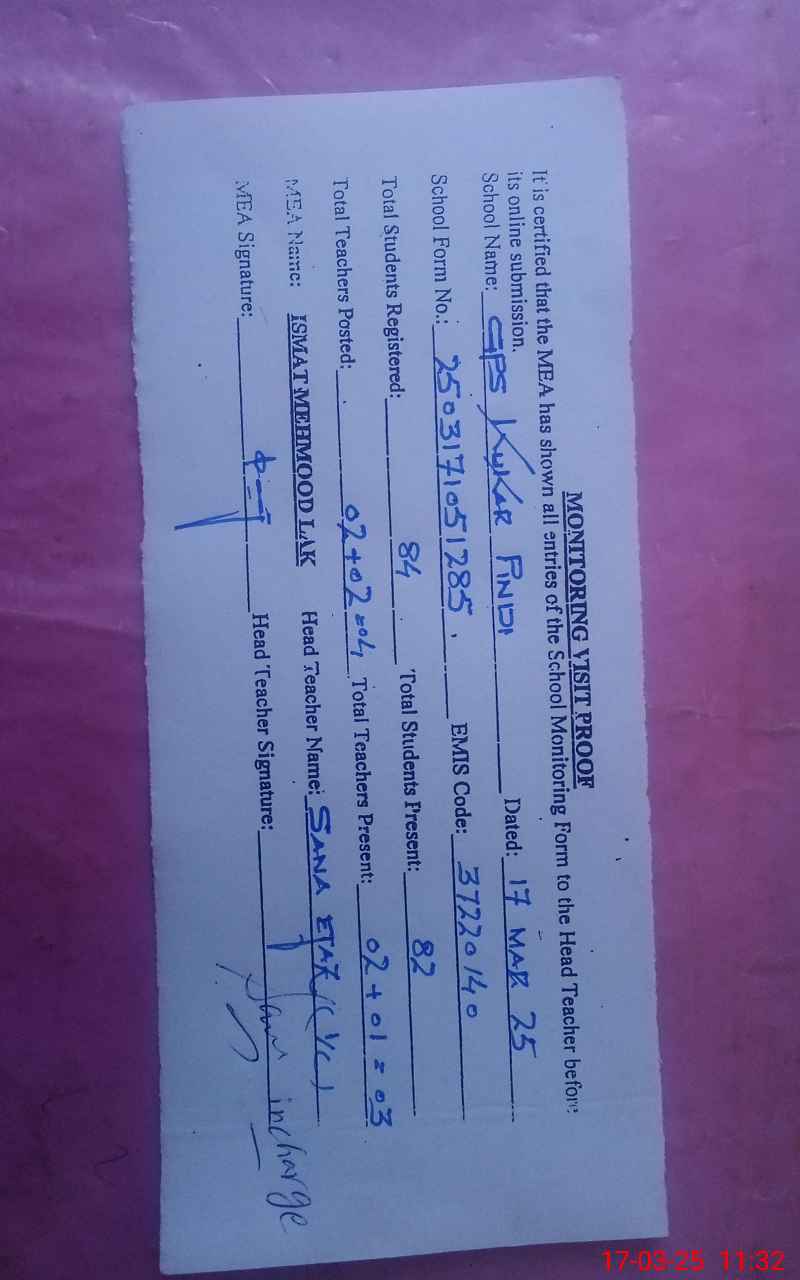 MONITORING VISIT PROOF
It is certified that the MEA has shown all entries of the School Monitoring Form to the Head Teacher before
its online submission.
School Name: GPS KUKAR PINDI Dated: 17 MAR 25
School Form No.: 2503171051285. EMIS Code: 37220140
Total Students Registered: 84 Total Students Present: 82
Total Teachers Posted: 02+02=04 Total Teachers Present: 02+01=03
MEA Name: ISMAT MEHMOOD LAK Head Teacher Name: SANA EJAZ (I/C)
MEA Signature: Head Teacher Signature:
incharge
17-03-25 11:32